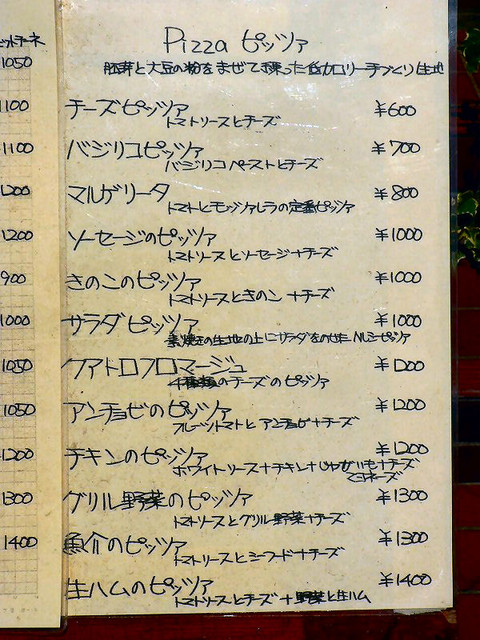 ットチーネ
1050
1100
1100
1200
1200
900
1000
1050
1050
1200
1300
1400
Pizza ピッツァ
胚芽と大豆の粉をまぜて練った低カロリー手づくり生地
チーズピッツァ ¥600
トマトソースとチーズ
バジリコピッツァ ¥700
バジリコペーストとチーズ
マルゲリータ ¥800
トマトとモッツァレラの定番ピッツァ
ソーセージのピッツァ ¥1000
トマトソースとソーセージ+チーズ
きのこのピッツァ ¥1000
トマトソースときのこ+チーズ
サラダピッツァ ¥1000
素焼きの生地の上にサラダをのせたハルシーピッツァ
クアトロフロマージュ ¥1200
4種類のチーズのピッツァ
アンチョビのピッツァ ¥1200
フルーツトマトとアンチョビ+チーズ
チキンのピッツァ ¥1200
ホワイトソース+チキン+じゃがいも+チーズ
マヨネーズ
グリル野菜のピッツァ ¥1300
トマトソースとグリル野菜+チーズ
魚介のピッツァ ¥1300
トマトソースとシーフード+チーズ
生ハムのピッツァ ¥1400
トマトソースとチーズ+野菜と生ハム